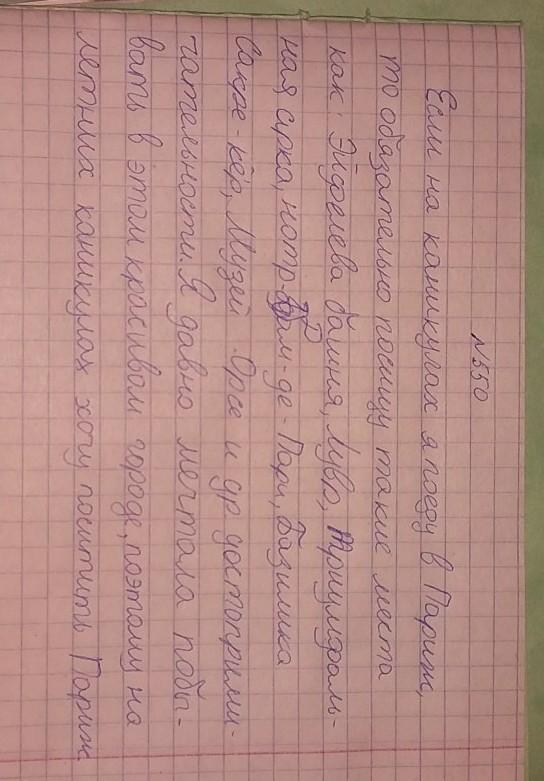 №550
Если на каникулах я поеду в Париж,
то обязательно посищу такие места
как: Эйфелева башня, Лувр, Триумфаль-
ная арка, нотр-дам-де-Пари, базилика
Сакре-кёр, Музей Орсе и др достоприми-
чательности. Я давно мечтала побы-
вать в этом красивом городе, поэтому на
летних каникулах хочу поситить Париж